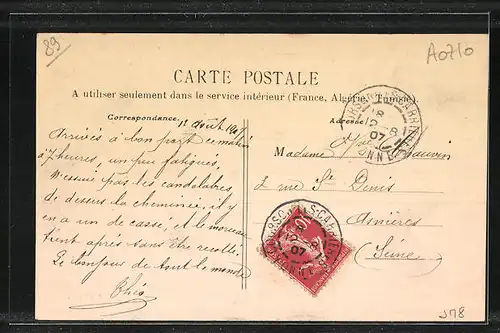 89
A0710
CARTE POSTALE
A utiliser seulement dans le service intérieur (France, Algérie, Tunisie)
Correspondance
Adresse
12 Août
Arrivés à bon port ce matin
à 7 heures, un peu fatigués.
N'essuie pas les candelabres
de dessus la cheminée, il y
en a un de cassé, et le morceau
tient après sans être recollé.
Le bonjour de tout le monde
Théo
Madame Chauvin
2 rue St Denis
Asnières
(Seine)
12 8
07
YONNE
10
JM8